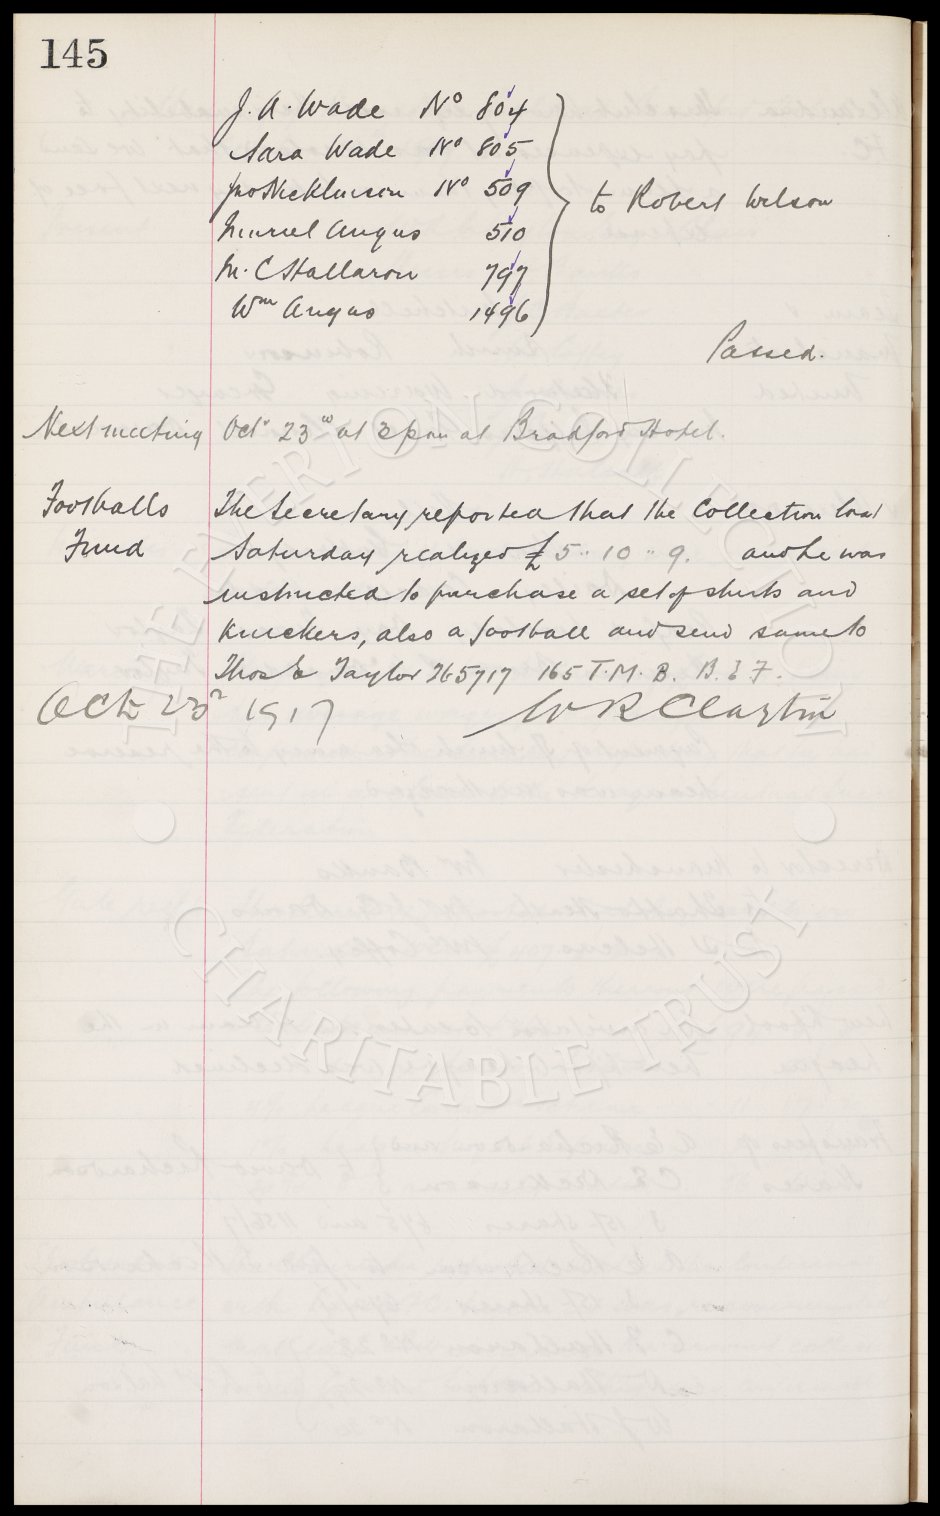 145
J. A. Wade No 804
Sara Wade No 805
Jno Nicklinson No 509
Muriel Angus 510
M. C Hallaron 797
Wm Angus 1496
to Robert Wilson
Passed.
Next meeting Octr 23rd at 3 p m at Bradford Hotel.
Footballs The Secretary reported that the Collection last
Fund Saturday realized £5 " 10 " 9. and he was
instructed to purchase a set of shirts and
knickers, also a football and send same to
Thos E Taylor 165 T.M.B. B.E.F.
Oct 23rd 1917 W R Clayton
EVERTON COLLECTION
CHARITABLE TRUST